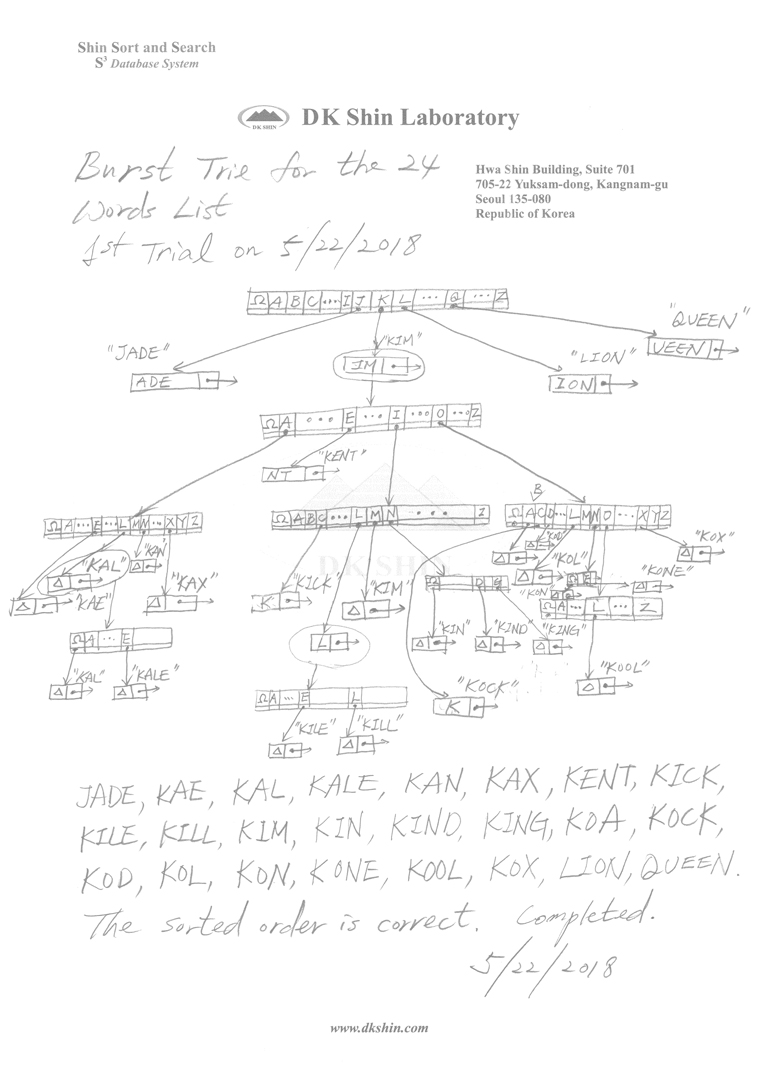 Shin Sort and Search
S³ Database System
DK SHIN
DK Shin Laboratory
Burst Trie for the 24
Words List
1st Trial on 5/22/2018
Hwa Shin Building, Suite 701
705-22 Yuksam-dong, Kangnam-gu
Seoul 135-080
Republic of Korea
Ω A B C ... I J K L ... Q ... Z
"JADE"
ADE
"KIM"
IM
"LION"
ION
"QUEEN"
UEEN
Ω A ... E ... I ... O ... Z
"KENT"
NT
Ω A ... E ... L M N ... X Y Z
Ω A B C ... L M N ... Z
B
Ω A C D ... L M N O ... X Y Z
"KAL"
Δ
"KAN"
Δ
"KAE"
Δ
"KAX"
Δ
"KICK"
K
"KIM"
Δ
Ω D G
"KOD"
Δ
"KOL"
Δ
"KON"
Δ
Ω E
"KONE"
Δ
"KOX"
Δ
Ω A ... L ... Z
Ω A ... E
"KAL"
Δ
"KALE"
Δ
L
"KIN"
Δ
"KIND"
Δ
"KING"
Δ
"KOOL"
Δ
"KOCK"
K
Ω A ... E L
"KILE"
Δ
"KILL"
Δ
DK SHIN
JADE, KAE, KAL, KALE, KAN, KAX, KENT, KICK,
KILE, KILL, KIM, KIN, KIND, KING, KOA, KOCK,
KOD, KOL, KON, KONE, KOOL, KOX, LION, QUEEN.
The sorted order is correct. Completed.
5/22/2018
www.dkshin.com